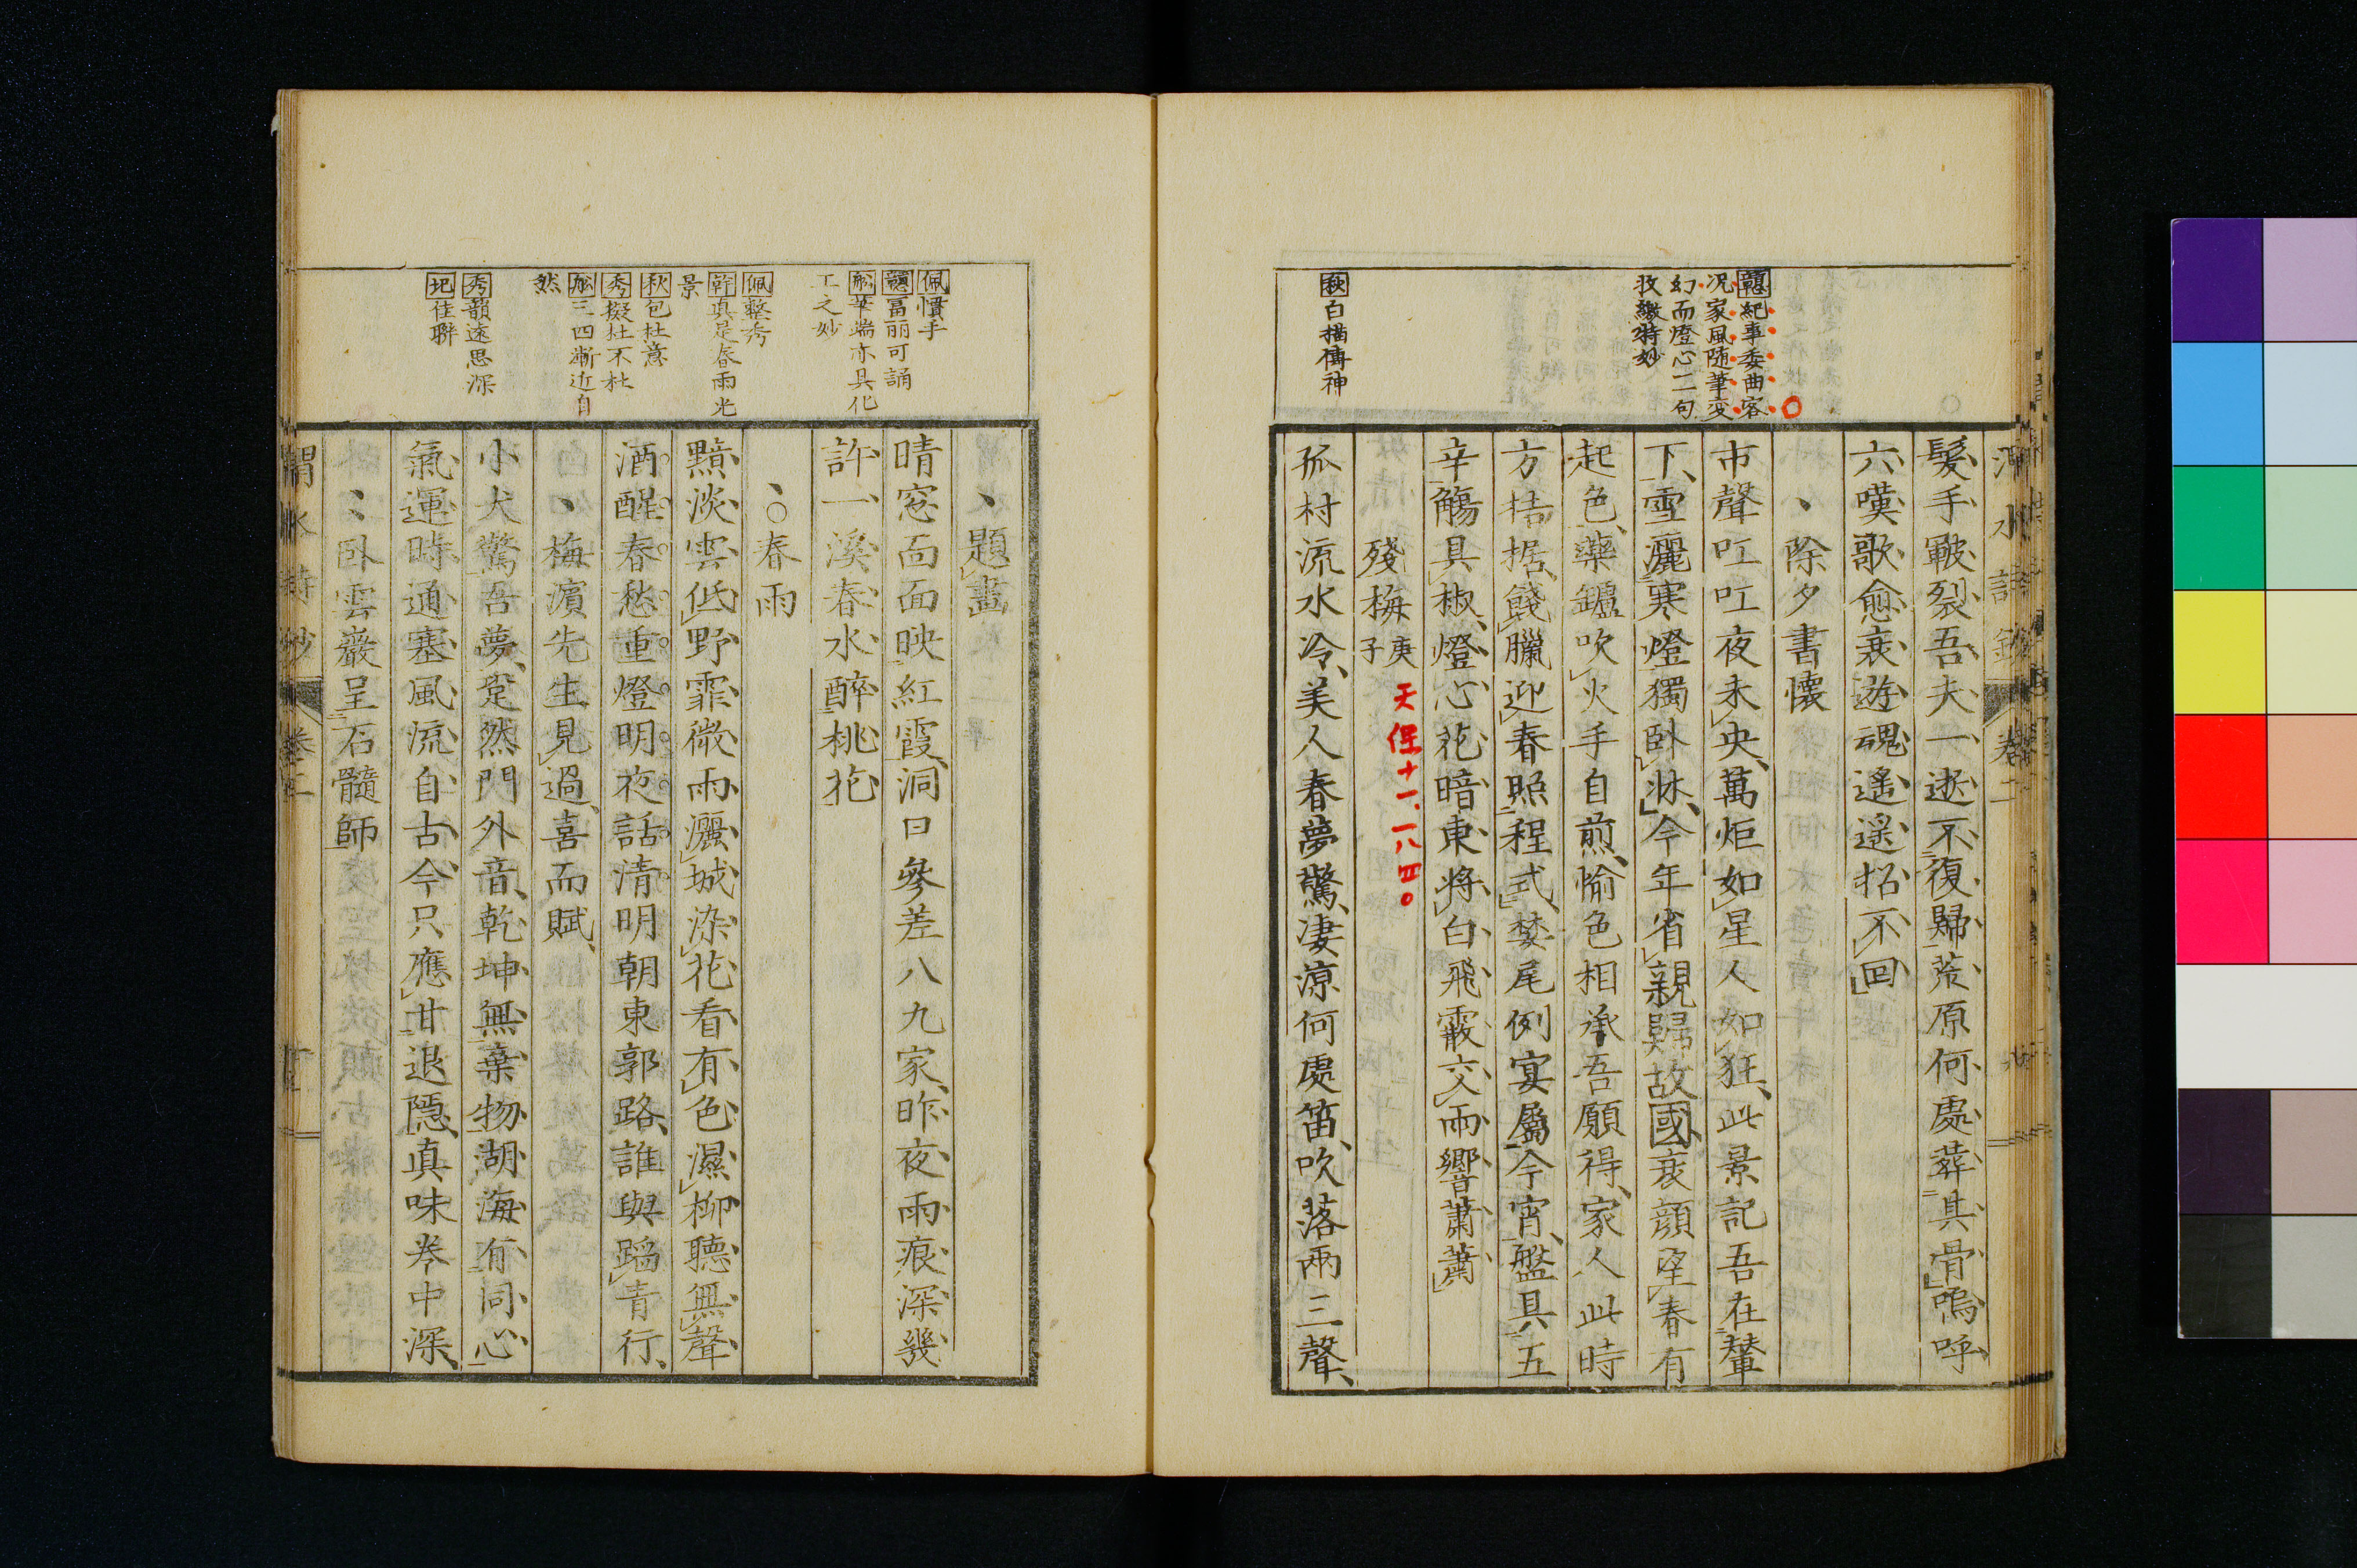 髮手皸裂吾夫一逝不復歸荒原何處葬其骨嗚呼
六嘆歌愈哀遊魂遙遙招不回
除夕書懷
市聲吅吅夜未央萬炬如星人如狂此景記吾在輦
下雪灑寒燈獨臥牀今年省親歸故國衰顏望春有
起色藥鑪吹火手自煎愉色相承吾願得家人此時
方拮据餞臘迎春照程式婪尾例宴屬今宵盤具五
辛觴具椒燈心花暗東將白飛霰六入雨響蕭蕭
殘梅庚子
天保十一、一八四〇
孤村流水冷美人春夢驚淒涼何處笛吹落兩三聲
紀事委曲客
况家風随筆変
幻而燈心二句
收繳特妙
秋白描傳神
題畫
晴窓面面映紅霞洞口參差八九家昨夜雨痕深幾
許一溪春水醉桃花
〇春雨
黯淡雲低野霏微雨灑城染花看有色濕柳聽無聲
酒醒春愁重燈明夜話清明朝東郭路誰與蹈青行
梅濵先生見過喜而賦
小犬驚吾夢跫然門外音乾坤無棄物湖海有同心
氣運時通塞風流自古今只應甘退隱真味岑中深
臥雲巖呈石髓師
佩慣手
富丽可誦
舩華端亦具化
工之妙
佩整秀
幹真是春雨光
景
秋包杜意
秀擬杜不杜
舩三四漸近自
然
秀韻遠思深
圯佳聯
卷二